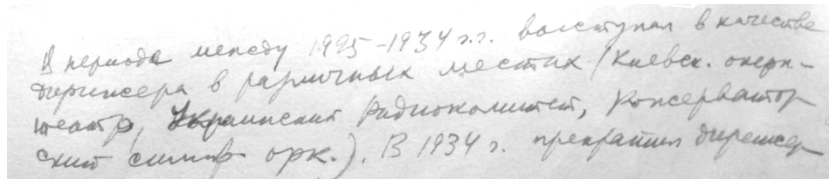 В периоде между 1925-1934 г.г. выступал в качестве
дирижера в различных местах (Киевск. оперн-
театр, Украинский Радиокомитет, Консерватор-
ский симф орк.). В 1934 г. прекратил дирижер